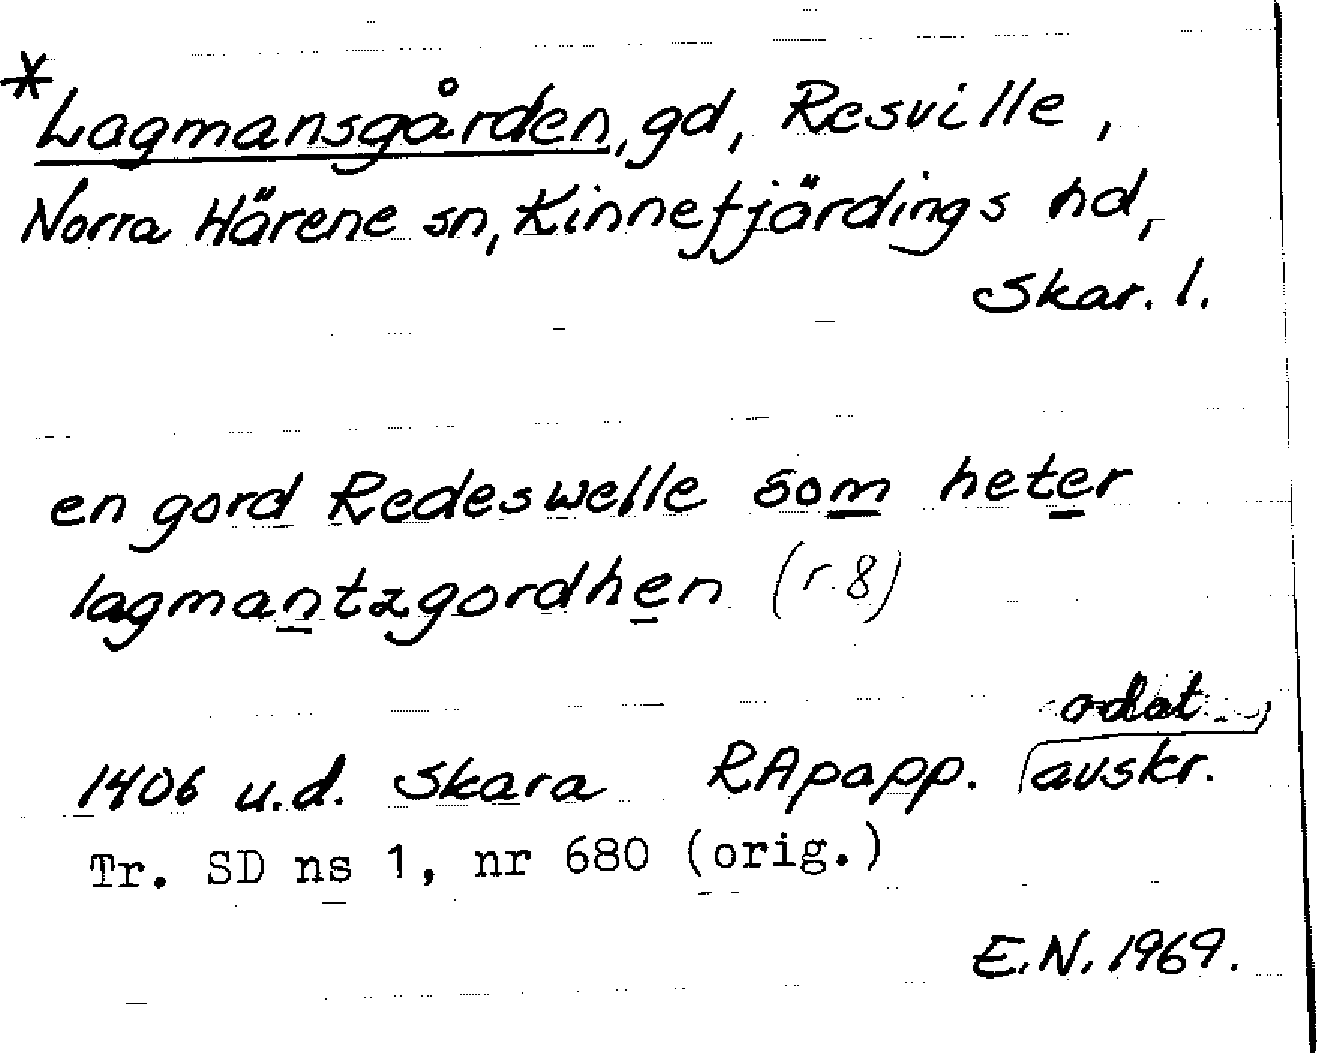 *Lagmansgården, gd, Resville,
Norra Härene sn, Kinnefjärdings hd,
Skar. l.
en gord Redeswelle som heter
lagmantzgordhen (r. 8)
odat.
1406 u.d. Skara RApapp. avskr.
Tr. SD ns 1, nr 680 (orig.)
E.N. 1969.